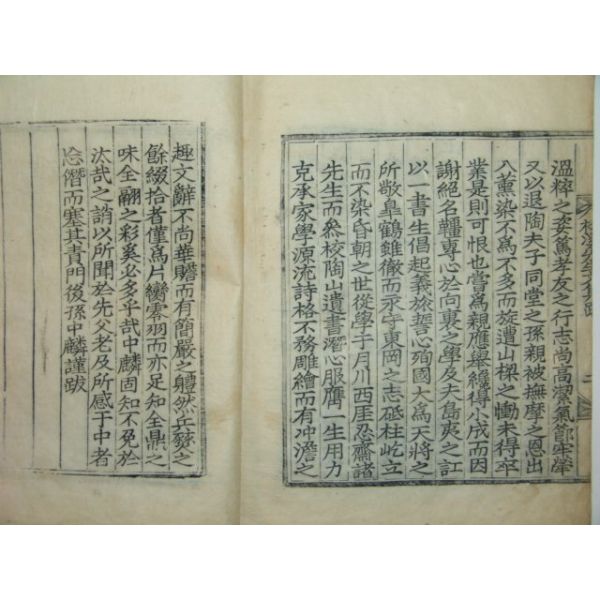 溫粹之姿篤孝友之行志尚高潔氣節牢犖
又以退陶夫子同堂之孫親被撫摩之恩出
入薰染不爲不多而旋遭山樑之慟未得卒
業是則可恨也嘗爲親應舉纔得小成而因
謝絕名韁專心於向裏之學及夫島夷之訌
以一書生倡起義旅誓心殉國大爲天將之
所歎臯鶴雖徹而永守東岡之志砥柱屹立
而不染昏朝之世從學于月川西厓忍齋諸
先生而爲校陶山遺書潛心服膺一生用力
克承家學源流詩格不務雕繪而有冲澹之
趣文辭不尚華贍而有簡嚴之軆然兵燹之
餘綴拾者僅爲片臠零羽而亦足知全鼎之
味全翮之彩奚必多乎哉中麟固知不免於
汰哉之誚以所聞於先父老及所感于中者
忘僭而塞其責門後孫中麟謹跋